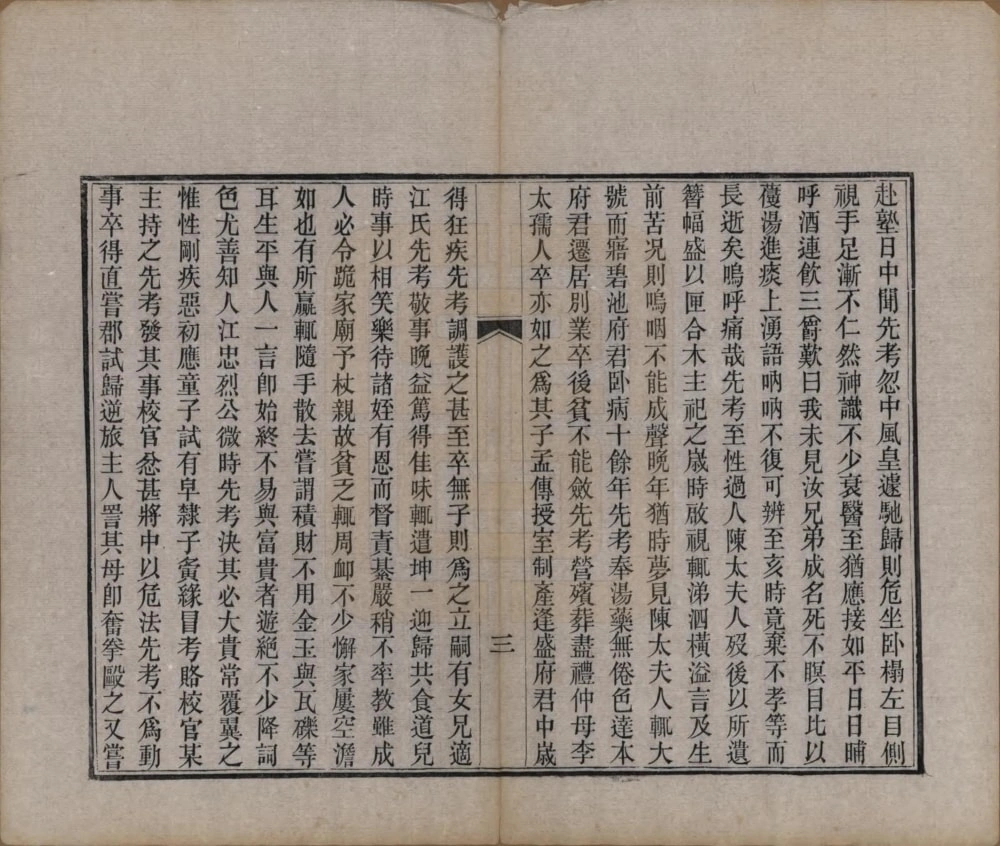 赴塾日中聞先考忽中風皇遽馳歸則危坐臥榻左目側
視手足漸不仁然神識不少衰醫至猶應接如平日日晡
呼酒連飲三爵歎曰我未見汝兄弟成名死不瞑目比以
葠湯進痰上湧語吶吶不復可辨至亥時竟棄不孝等而
長逝矣嗚呼痛哉先考至性過人陳太夫人歿後以所遺
簪幅盛以匣合木主祀之歲時啟視輒涕泗橫溢言及生
前苦況則嗚咽不能成聲晚年猶時夢見陳太夫人輒大
號而寤碧池府君臥病十餘年先考奉湯藥無倦色達本
府君遷居別業卒後貧不能斂先考營殯葬盡禮仲母李
太孺人卒亦如之爲其子孟傳授室制產逢盛府君中歲
三
得狂疾先考調護之甚至卒無子則爲之立嗣有女兄適
江氏先考敬事晚益篤得佳味輒遣坤一迎歸共食道兒
時事以相笑樂待諸姪有恩而督責綦嚴稍不率教雖成
人必令跪家廟予杖親故貧乏輒周卹不少懈家屢空澹
如也有所贏輒隨手散去嘗謂積財不用金玉與瓦礫等
耳生平與人一言卽始終不易與富貴者遊絕不少降詞
色尤善知人江忠烈公微時先考決其必大貴常覆翼之
惟性剛疾惡初應童子試有皁隸子夤緣冒考賂校官某
主持之先考發其事校官忿甚將中以危法先考不爲動
事卒得直嘗郡試歸逆旅主人詈其母卽奮拳毆之又嘗